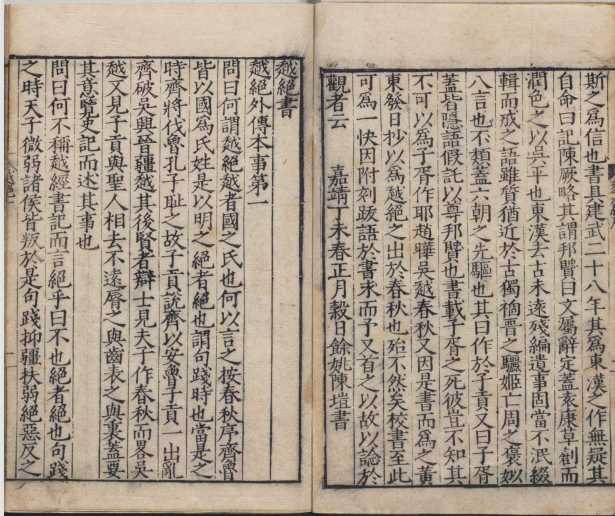 斯之為信也書具建武二十八年其為東漢之作無疑其
自命曰記陳厥略其謂邦賢曰文屬辭定蓋袁康草創而
潤色之以吳平也東漢去古未遠殘編遺事固當不泯綴
輯而成之語雖質猶近於古獨摘晋之驪姬亡周之褒姒
八言也不類蓋六朝之先驅也其曰作於子貢又曰子胥
蓋皆隱語假託以尊邦賢也書載子胥之死彼豈不知其
不可以為子胥作耶趙曄吳越春秋又因是書而為之黃
東發日抄以為越絕之出於春秋也殆不然矣校書至此
可為一快因附刻跋語於書末而予又首之以故以諗於
觀者云　嘉靖丁未春正月穀日餘姚陳塏書
越絕書
越絕外傳本事第一
問曰何謂越絕越者國之氏也何以言之按春秋序齊魯
皆以國為氏姓是以明之絕者絕也謂句踐時也當是之
時齊將伐魯孔子恥之故子貢說齊以安魯子貢一出亂
齊破吳興晉疆越其後賢者辯士見夫子作春秋而略吳
越又見子貢與聖人相去不遠脣之與齒表之與裏蓋要
其意覽史記而述其事也
問曰何不稱越經書記而言絕乎曰不也絕者絕也句踐
之時天子微弱諸侯皆叛於是句踐抑疆扶弱絕惡反之